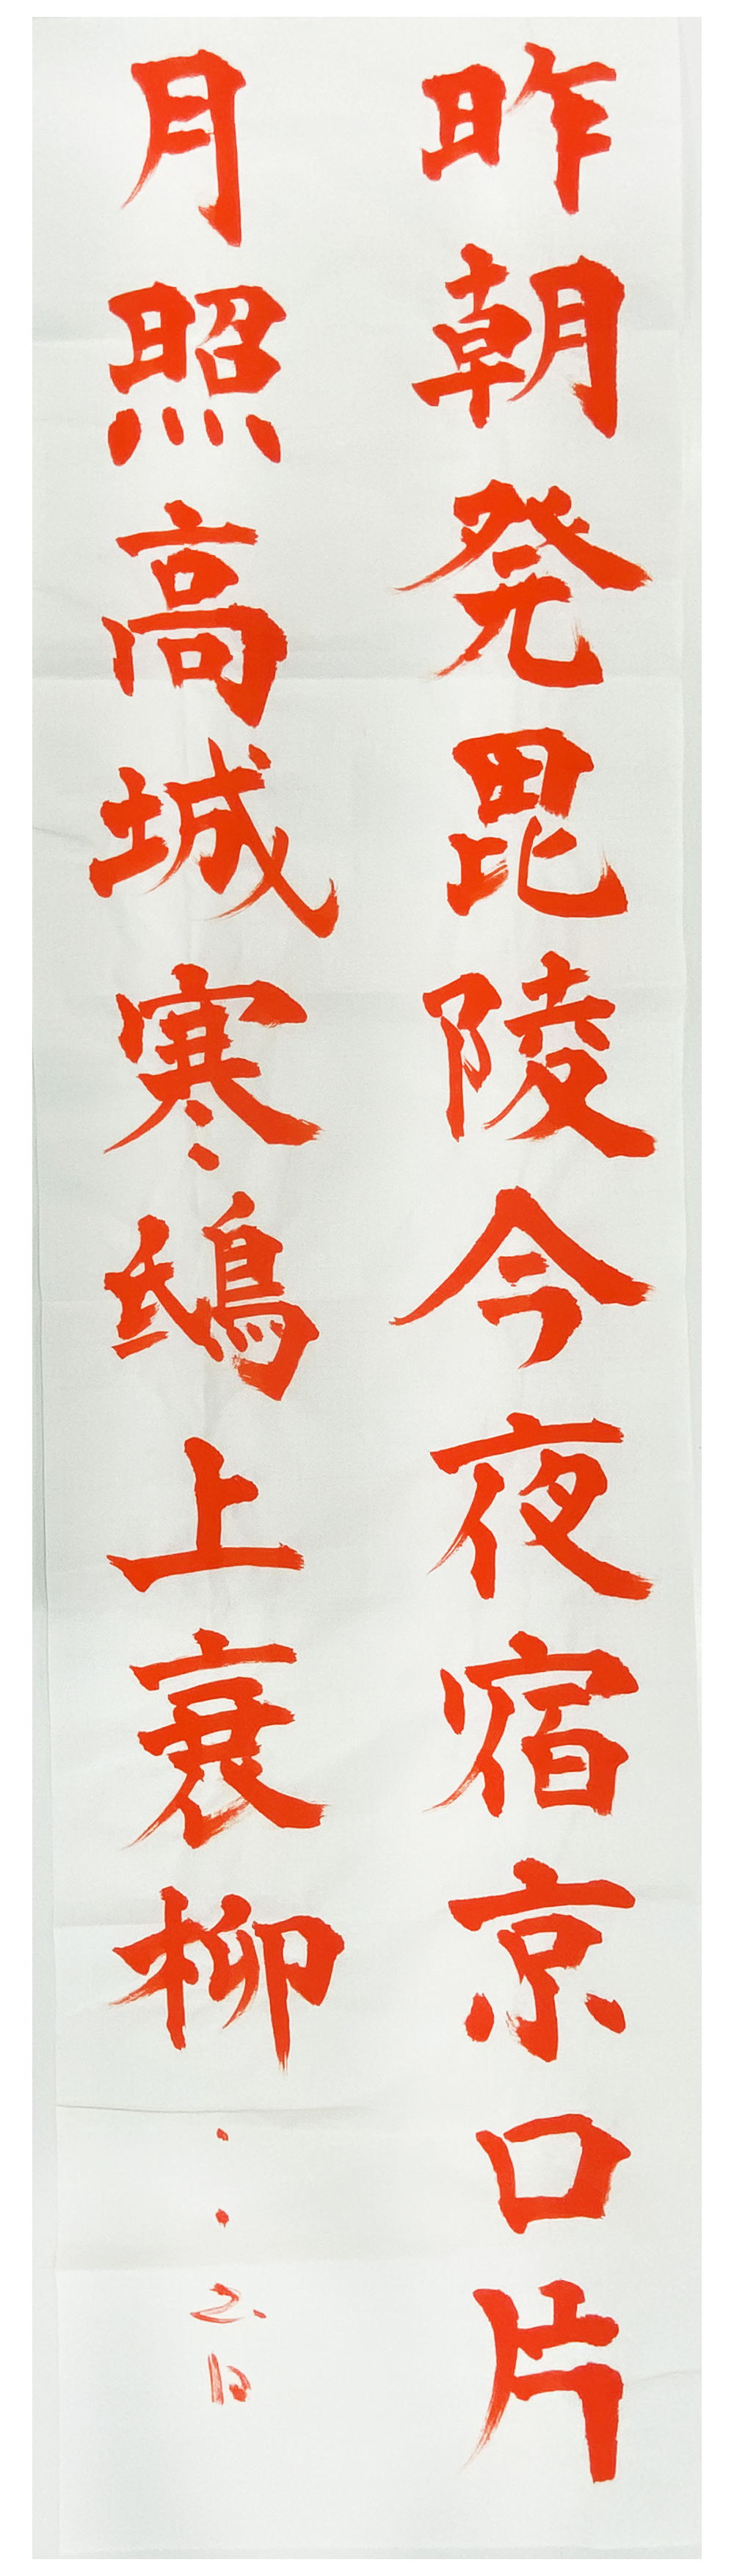 昨朝発毘陵今夜宿京口片
月照高城寒鴟上衰柳